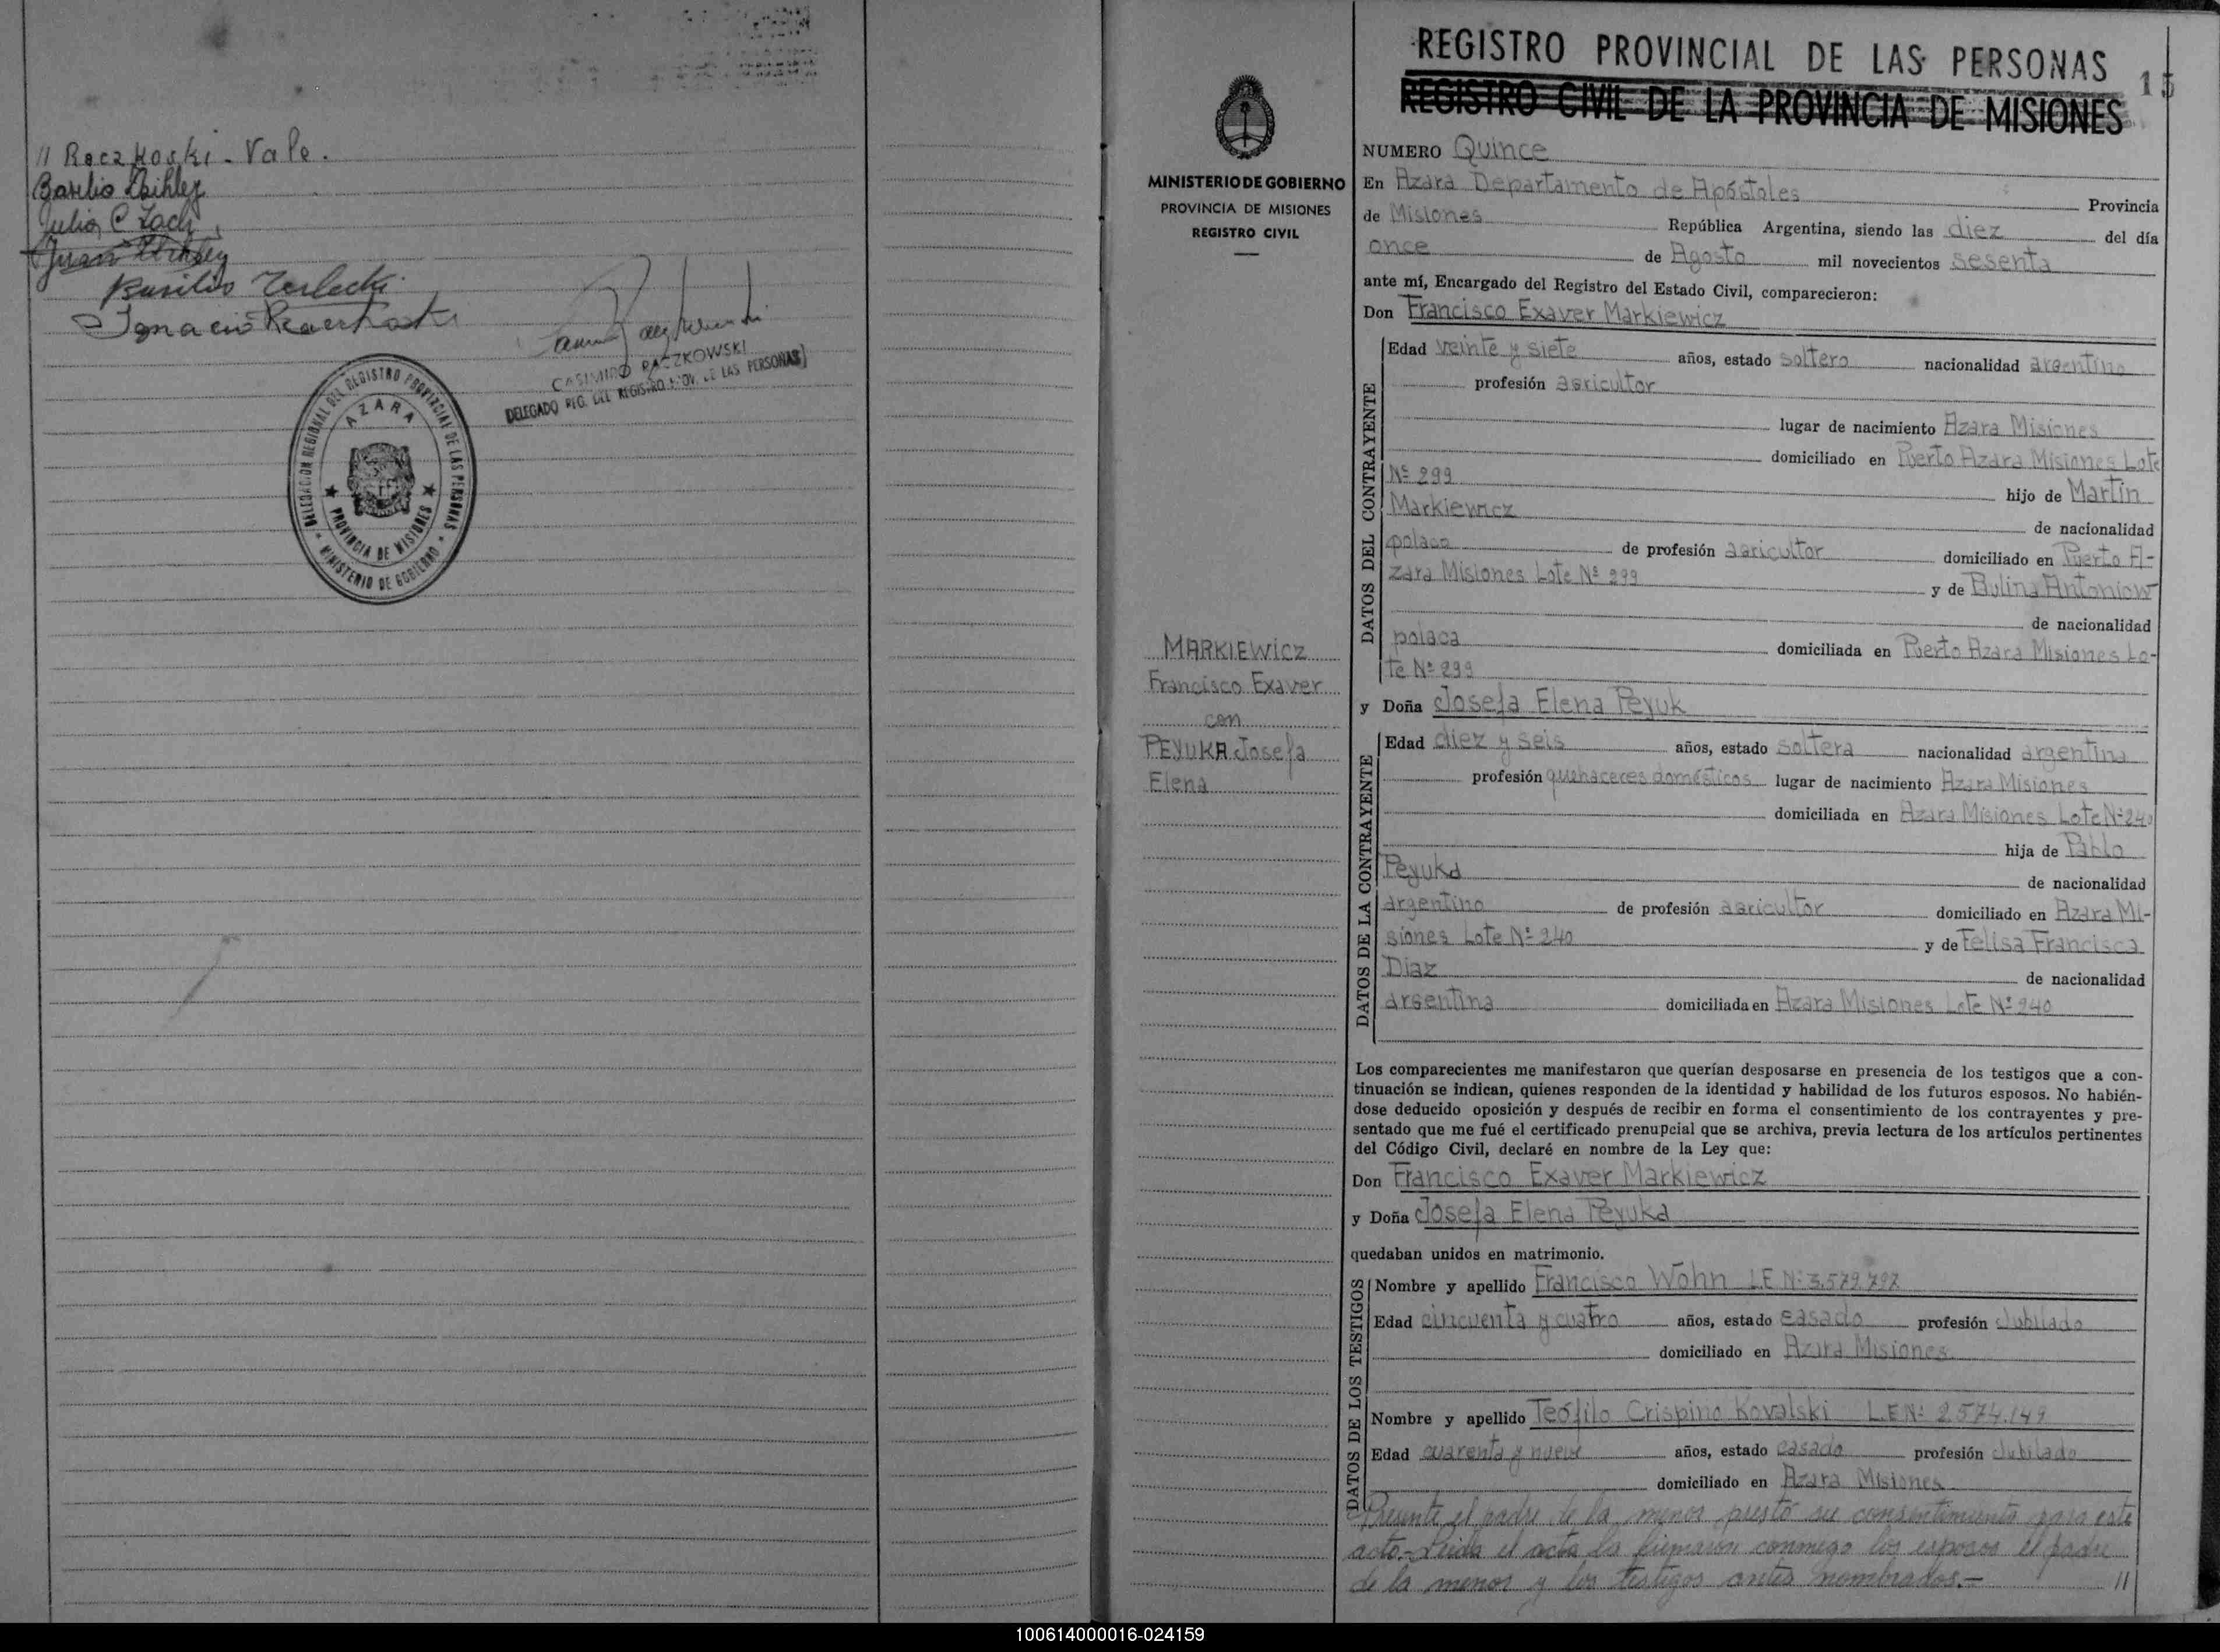 // Raczkoski - Vale.
Basilio
Julio C
Juan
Basilio Terlecki
Ignacio
CASIMIRO RACZKOWSKI
DELEGADO REG. DEL REGISTRO PROV. DE LAS PERSONAS
DELEGACION REGIONAL DEL REGISTRO PROVINCIAL DE LAS PERSONAS
MINISTERIO DE GOBIERNO
AZARA
PROVINCIA DE MISIONES
MINISTERIO DE GOBIERNO
PROVINCIA DE MISIONES
REGISTRO CIVIL
MARKIEWICZ
Francisco Exaver
con
PEYUKA Josefa
Elena
REGISTRO PROVINCIAL DE LAS PERSONAS
15
REGISTRO CIVIL DE LA PROVINCIA DE MISIONES
NUMERO Quince
En Azara Departamento de Apóstoles Provincia
de Misiones República Argentina, siendo las diez del día
once de Agosto mil novecientos sesenta
ante mí, Encargado del Registro del Estado Civil, comparecieron:
Don Francisco Exaver Markiewicz
DATOS DEL CONTRAYENTE
Edad veinte y siete años, estado soltero nacionalidad argentino
profesión agricultor
lugar de nacimiento Azara Misiones
domiciliado en Puerto Azara Misiones Lote
Nº 299 hijo de Martin
Markiewicz de nacionalidad
polaco de profesión agricultor domiciliado en Puerto A-
zara Misiones Lote Nº 299 y de Pulina Antoniow
de nacionalidad
polaca domiciliada en Puerto Azara Misiones Lo-
te Nº 299
y Doña Josefa Elena Peyuk
DATOS DE LA CONTRAYENTE
Edad diez y seis años, estado soltera nacionalidad argentina
profesión quehaceres domésticos lugar de nacimiento Azara Misiones
domiciliada en Azara Misiones Lote Nº 240
hija de Pablo
Peyuka de nacionalidad
argentino de profesión agricultor domiciliado en Azara Mi-
siones Lote Nº 240 y de Felisa Francisca
Diaz de nacionalidad
argentina domiciliada en Azara Misiones Lote Nº 240
Los comparecientes me manifestaron que querían desposarse en presencia de los testigos que a con-
tinuación se indican, quienes responden de la identidad y habilidad de los futuros esposos. No habién-
dose deducido oposición y después de recibir en forma el consentimiento de los contrayentes y pre-
sentado que me fué el certificado prenupcial que se archiva, previa lectura de los artículos pertinentes
del Código Civil, declaré en nombre de la Ley que:
Don Francisco Exaver Markiewicz
y Doña Josefa Elena Peyuka
quedaban unidos en matrimonio.
DATOS DE LOS TESTIGOS
Nombre y apellido Francisco Wohn L.E Nº 3.579.797
Edad cincuenta y cuatro años, estado casado profesión Jubilado
domiciliado en Azara Misiones
Nombre y apellido Teófilo Crispino Kovalski L.E Nº 2.574.149
Edad cuarenta y nueve años, estado casado profesión Jubilado
domiciliado en Azara Misiones
Presente el padre de la menor prestó su consentimiento para este
acto.- Leida el acta la firmaron conmigo los esposos el padre
de la menor y los testigos antes nombrados.- //
100614000016-024159